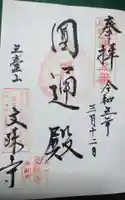 奉拝
令和五年
三月十二日
圓通殿
五臺山
文殊寺